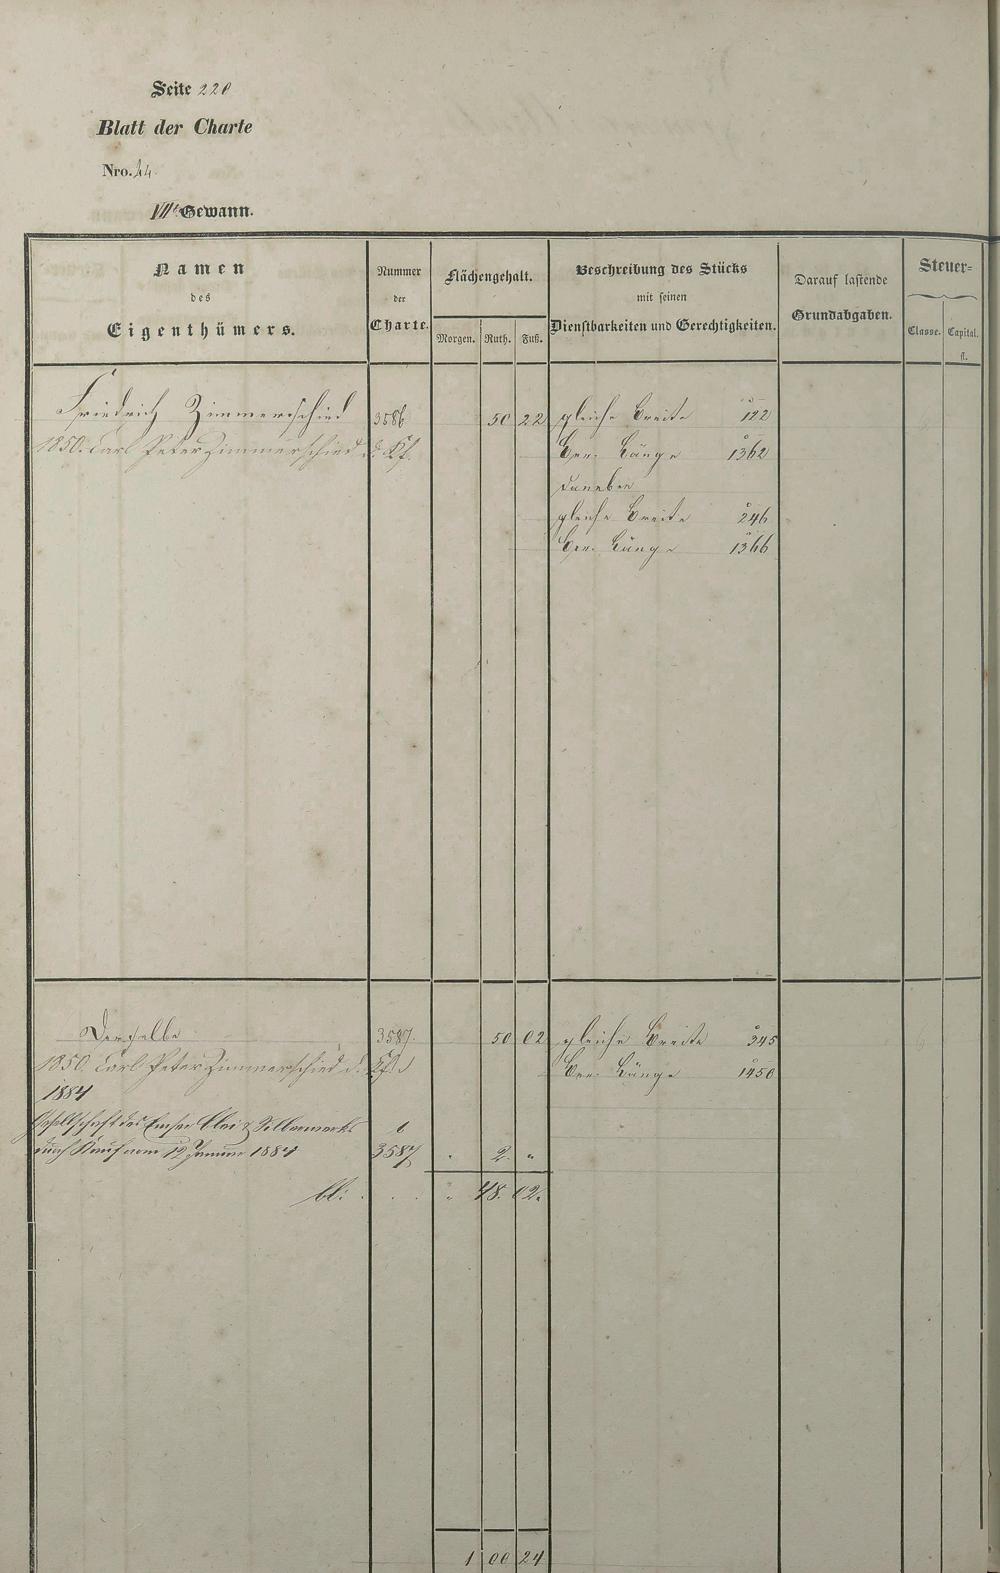 Seite 220
Blatt der Charte
Nro. 44.
VIIte Gewann.
Namen des Eigenthümers.
Nummer der Charte.
Flächengehalt.
Morgen. Ruth. Fuß.
Beschreibung des Stücks mit seinen Dienstbarkeiten und Gerechtigkeiten.
Darauf lastende Grundabgaben.
Steuer=
Classe. Capital.
fl.
Friedrich Zimmerschied 3586 50 22 gleiche Breite 122
1850. Carl Peter Zimmerschied d. Kf. Ber. Länge 1362
daneben
gleiche Breite 246
Ber. Länge 1366
Derselbe 3587. 50 02 gleiche Breite 345
1850. Carl Peter Zimmerschied d. Kf. Ber. Länge 1450
1884
Gesellschaft des Emser Blei & Silberwerks
durch Kauf vom 12 Januar 1884 3587 " 2. "
bl: . . . " 48. 02.
1 00 24